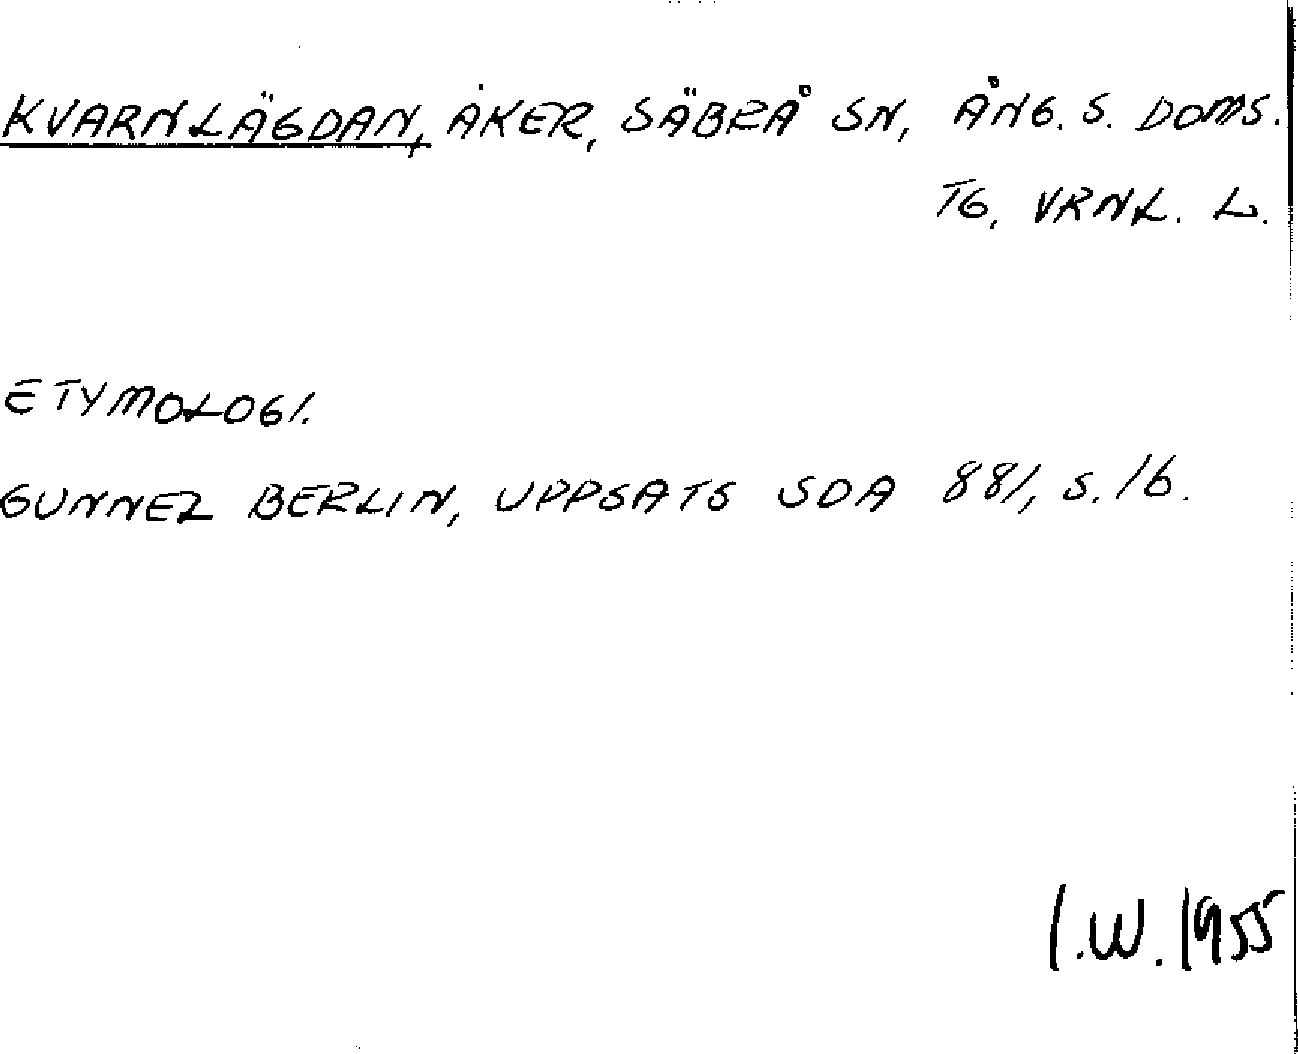 KVARNLÄGDAN, ÅKER, SÄBRÅ SN, ÅNG. S. DOMS.
TG, VRNL. L.
ETYMOLOGI.
GUNNEL BERLIN, UPPSATS SOA 881, S. 16.
I.W. 1955